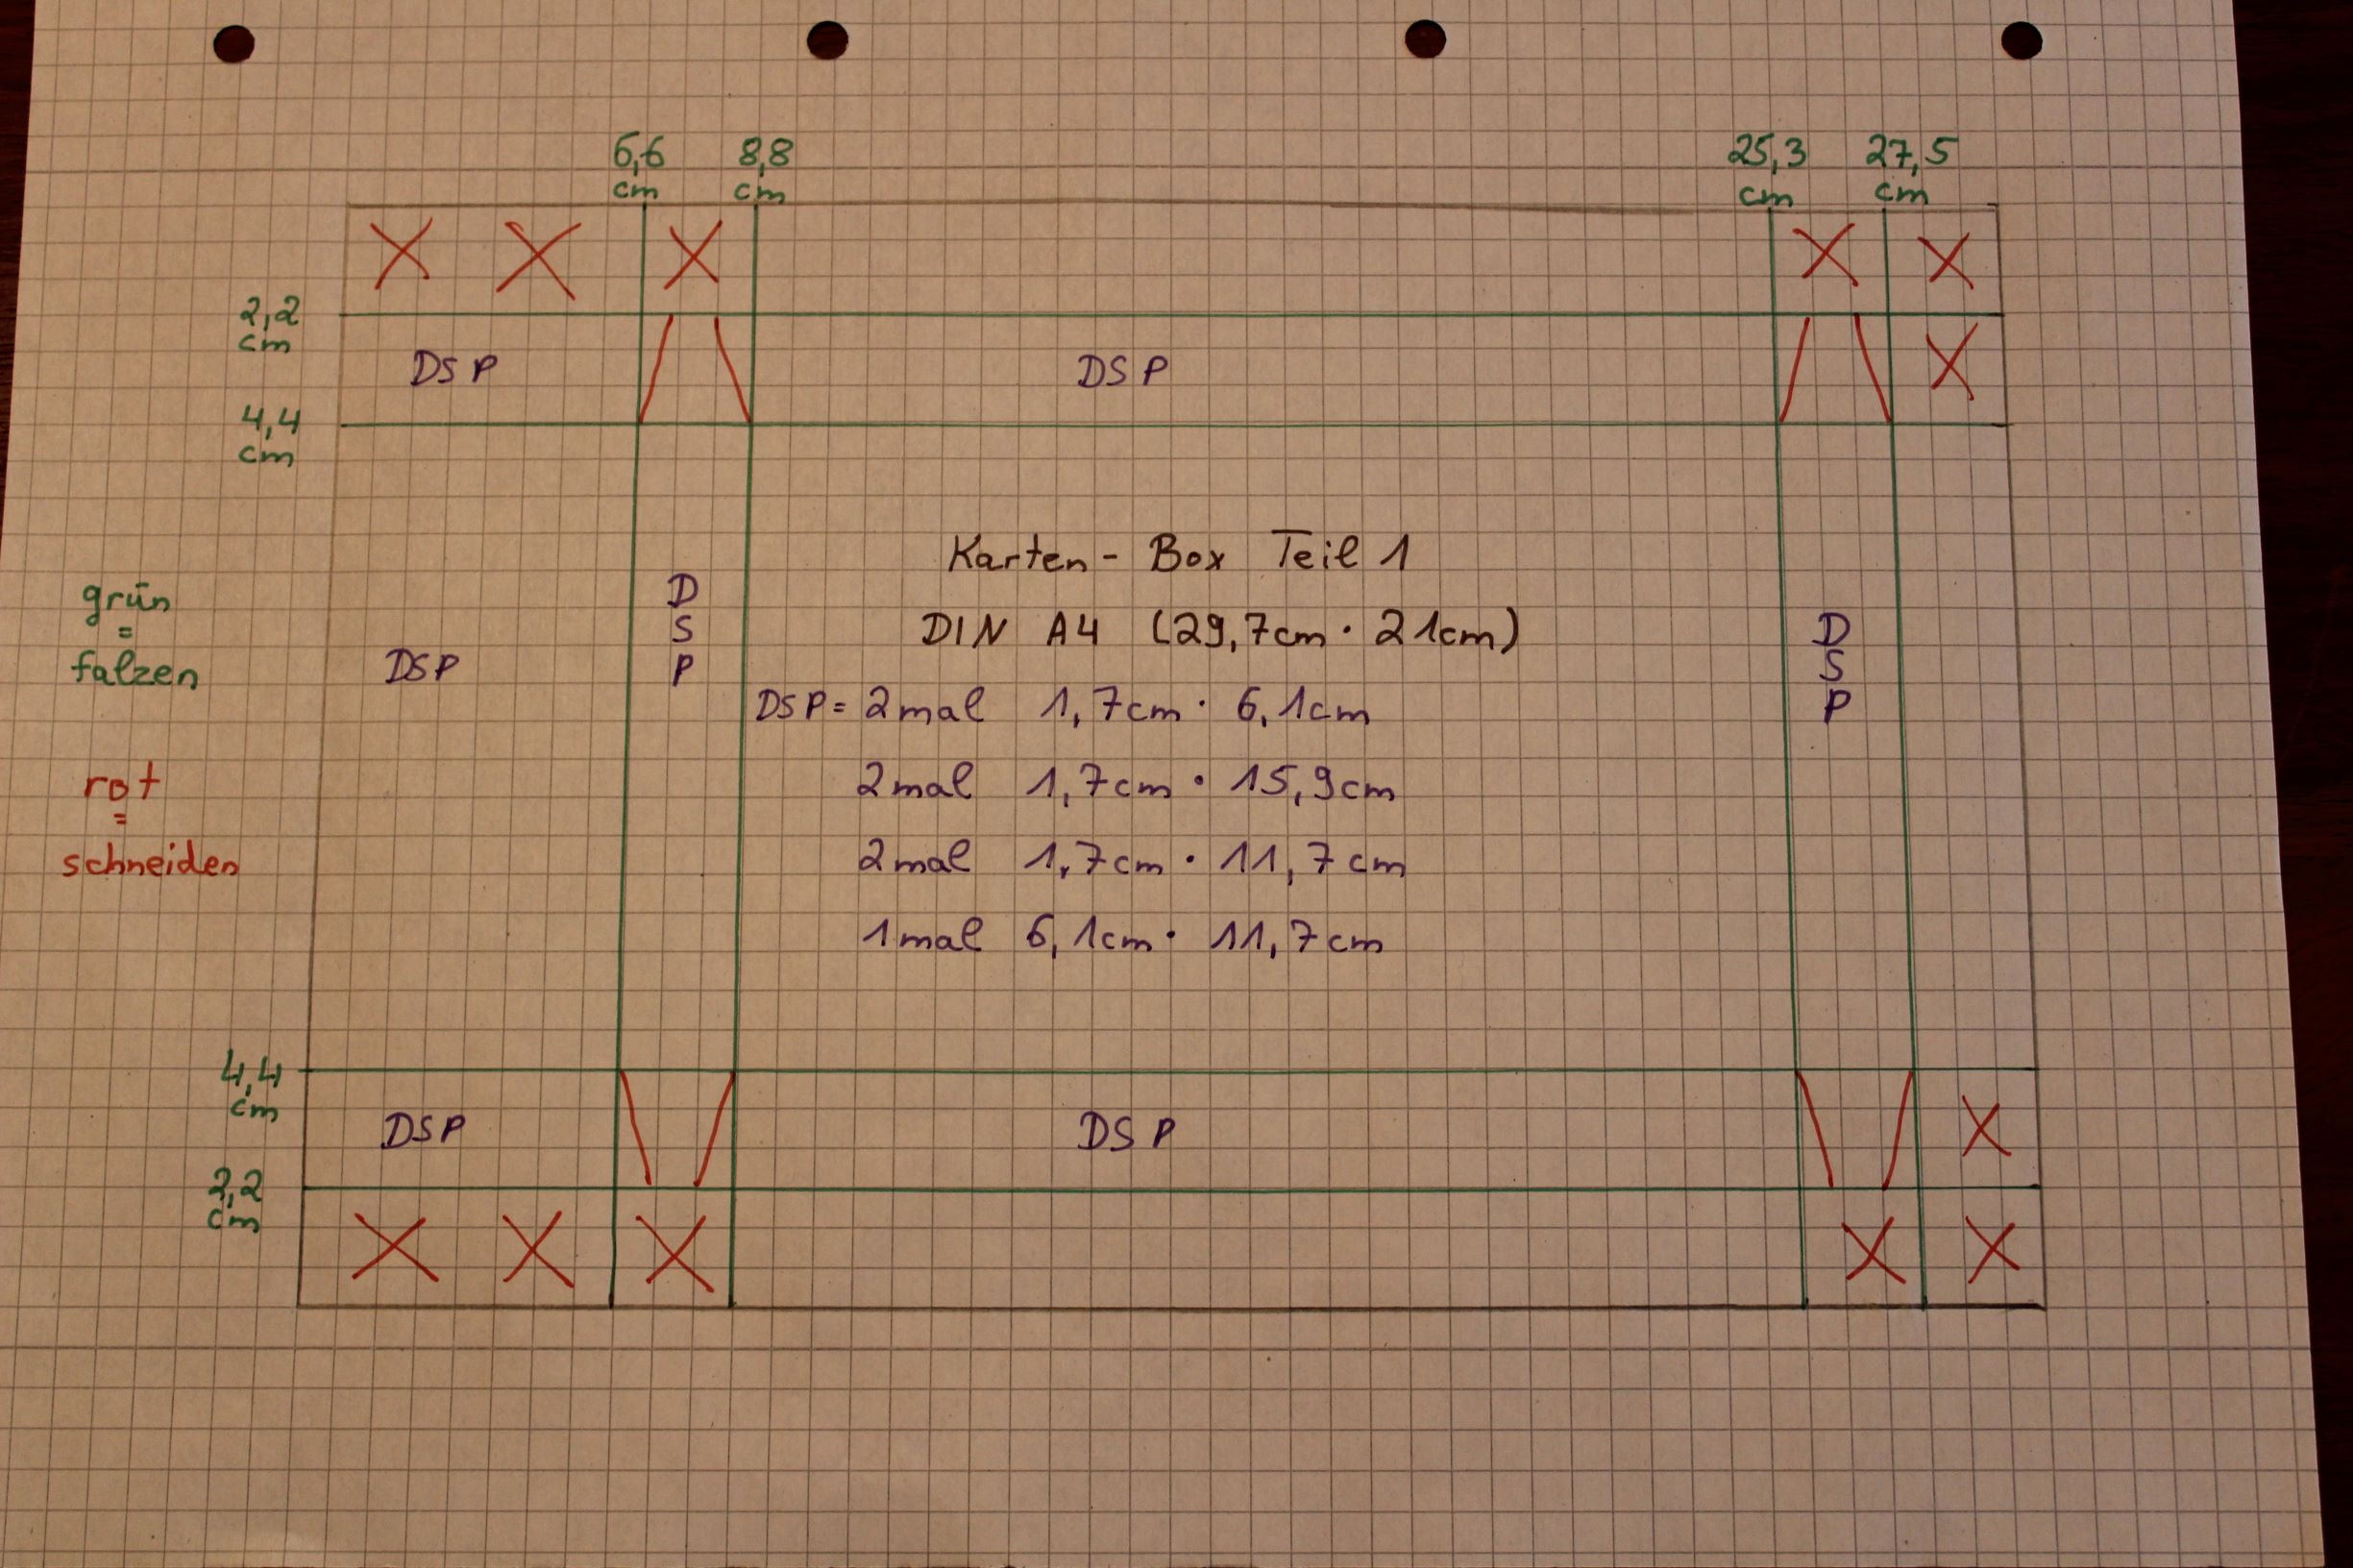 6,6 8,8 25,3 27,5
cm cm cm cm
2,2
cm
DSP DSP
4,4
cm
Karten - Box Teil 1
grün
=
falzen
D
S
P
DIN A4 (29,7cm · 21cm)
D
S
P
DSP
DSP = 2mal 1,7cm · 6,1cm
2mal 1,7cm · 15,9cm
rot
=
schneiden
2mal 1,7cm · 11,7cm
1mal 6,1cm · 11,7cm
4,4
cm
DSP DSP
2,2
cm